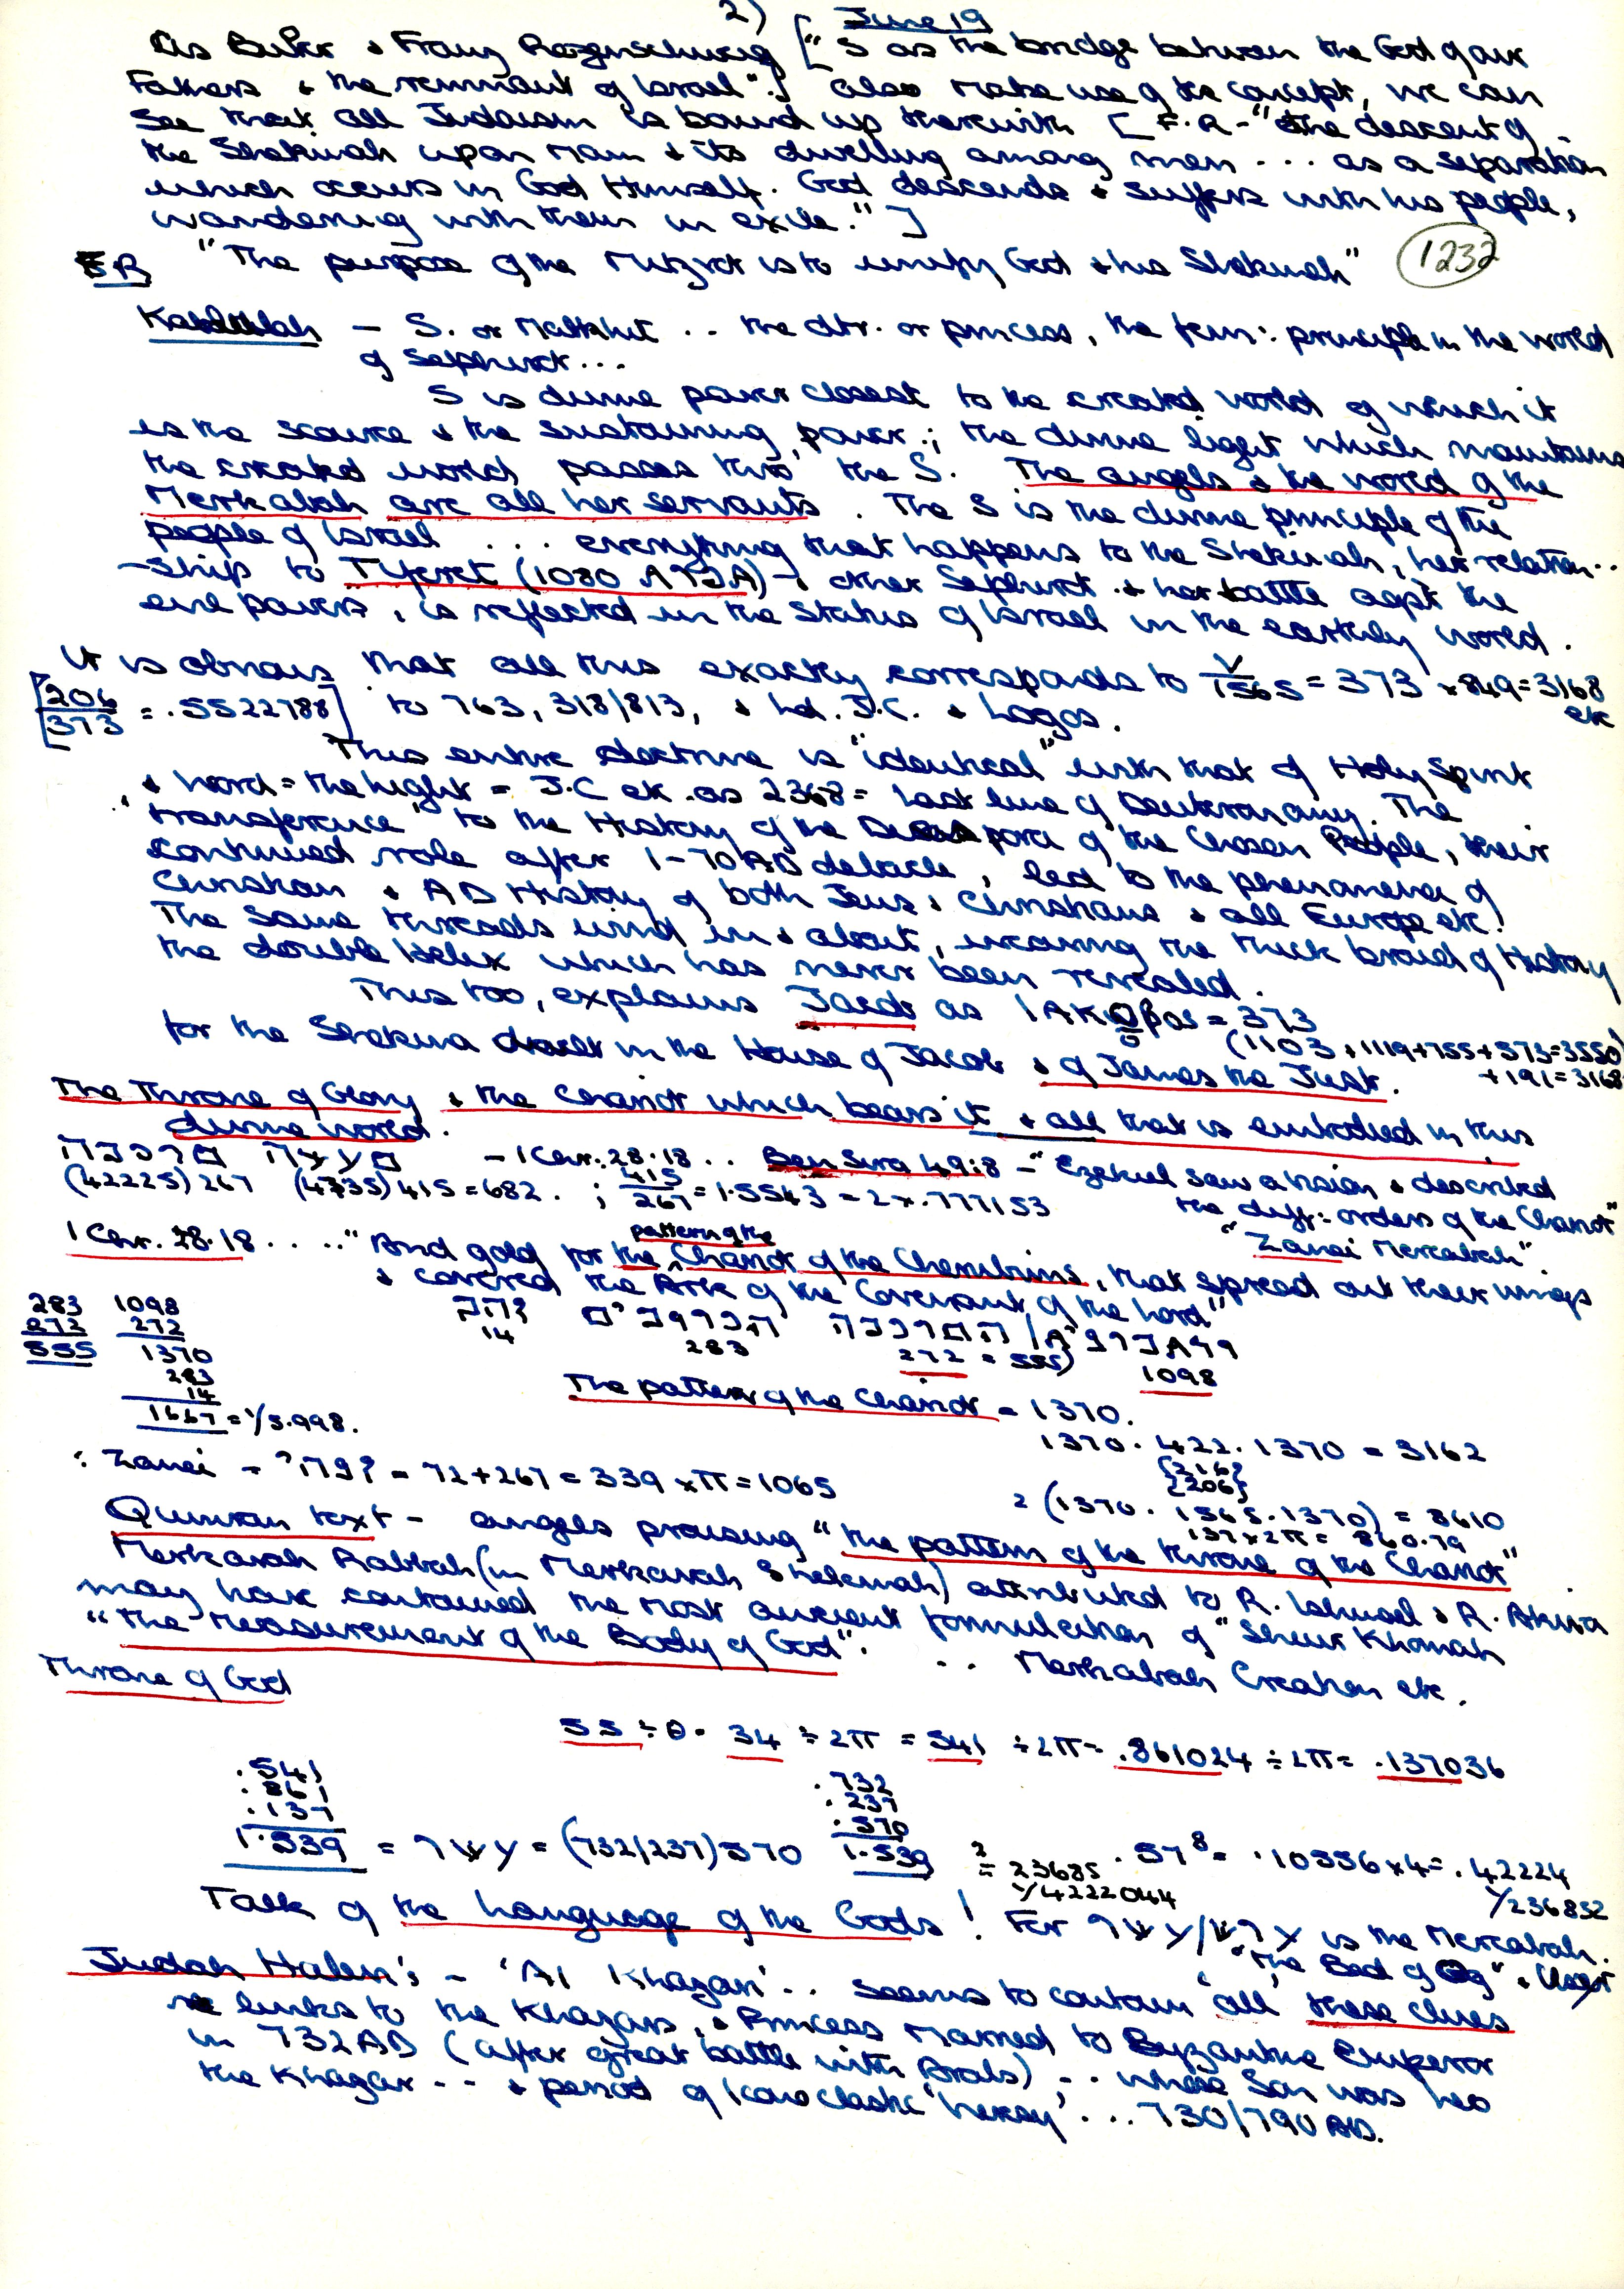 2) [June 19
As Buber & Franz Rozenschweig ["S as the bridge between the God of our
Fathers & the remnant of Israel".] also make use of the concept, we can
see that all Judaism is bound up therewith [F.R - "the descent of
the Shekinah upon Man & its dwelling among men ... as a separation
which occurs in God Himself. God descends & suffers with his people,
wandering with them in exile." ]
F.R "The purpose of the Mitzvot is to unify God & his Shekinah" 1232
Kabbalah - S. or Malkhut .. the dtr. or princess, the fem: principle in the world
of Sephirot ...
S is divine power closest to the created world of which it
is the source & the sustaining power; the divine light which maintains
the created world passes thro' the S. The angels & the world of the
Merkabah are all her servants. The S is the divine principle of the
people of Israel ... everything that happens to the Shekinah, her relation
-ship to Tiferet (1080 ) & other Sephirot & her battle agst the
evil powers, is reflected in the status of Israel in the earthly world.
It is obvious that all this exactly corresponds to √1565 = 373 × 849 = 3168
etc
[206/373 = .5522788] to 763, 318/813, & Ld. J.C. & Logos.
This entire doctrine is "identical" with that of Holy Spirit
& Word = the Light = J.C etc. as 2368 = last line of Deuteronomy. The
'transference' to the History of the Diaspora of the Chosen People, their
continued role after 1-70 AD debacle, led to the phenomena of
Christian & AD History of both Jews & Christians & all Europe etc!
The same threads wind in & about, weaving the thick braid of History
the double Helix which has never been revealed.
This too, explains Jacob as IAKOβos = 373
(1103 + 1119 + 755 + 573 = 3550)
+ 191 = 3168
for the Shekina dwelt in the House of Jacob & of James the Just.
The Throne of Glory & the Chariot which bears it & all that is embodied in this
divine world.
- 1 Chr. 28.18 .. Ben Sira 49:8 - "Ezekiel saw a vision & described
the diff: orders of the Chariot"
(42225) 267 (4735) 415 = 682. ; 415/267 = 1.5543 = 2 × .777153
"Zanei Mercabah".
1 Chr. 28.18 ..... "And gold for the pattern of the Chariot of the Cherubims, that spread out their wings
& covered the Ark of the Covenant of the Lord"
14 283 272 = 555) 1098
283 1098
272 272
555 1370
283
14
1667 = 1/5.998.
The pattern of the Chariot = 1370.
1370 . 422 . 1370 = 3162
{216}
{206}
: Zanei - = 72 + 267 = 339 × π = 1065
2 (1370 . 1565 . 1370) = 8610
137 × 2π = 860.79
Qumran text - angels praising "the pattern of the throne of the Chariot"
Merkavah Rabbah (in Merkavah Shelemah) attributed to R. Ishmael & R. Akiva
may have contained the most ancient formulation of "Sheur Khomah
"the Measurement of the Body of God". .. Merkabah Creation etc.
Throne of God
55 ÷ θ . 34 ÷ 2π = 541 ÷ 2π = .861024 ÷ 2π = .137036
.541 .732
.861 .237
.137 .570
1.539 = (732/237) 570 1.539
2 = 23685 . 57⁸ = .10556 × 4 = .42224
1/4222044 1/236852
Talk of the Language of the Gods! For is the Mercabah.
"the Bed of Og" &
Judah Halevi's - 'Al Khazari' .. seems to contain 'all' these clues
re links to the Khazars, & Princess married to Byzantine Emperor
in 732 AD (after great battle with Arabs) .. whose Son was Leo
the Khazar .. & period of Iconoclastic 'heresy' ... 730/790 AD.